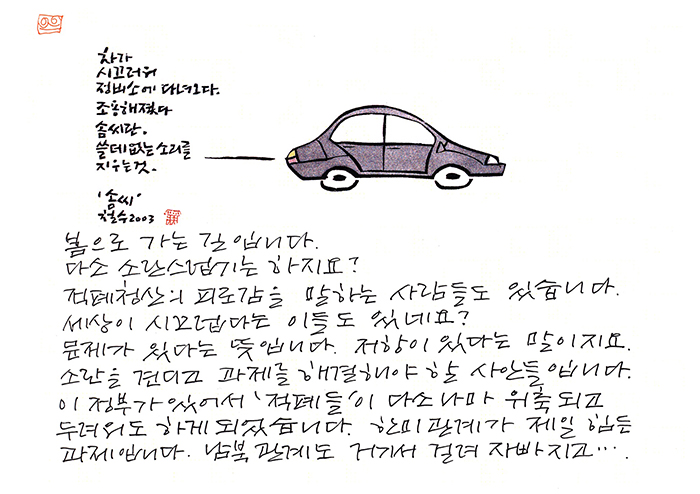 차가
시끄러워
정비소에 다녀오다.
조용해졌다
솜씨란.
쓸데없는 소리를
지우는 것.
'솜씨'
철수 2003
봄으로 가는 길입니다.
다소 소란스럽기는 하지요?
적폐청산의 피로감을 말하는 사람들도 있습니다.
세상이 시끄럽다는 이들도 있네요?
문제가 있다는 뜻입니다. 저항이 있다는 말이지요.
소란을 견디고 과제를 해결해야 할 사안들입니다.
이 정부가 있어서 '적폐들'이 다소나마 위축되고
두려워도 하게 되었습니다. 한미관계가 제일 힘든
과제입니다. 남북관계도 거기서 걸려 자빠지고….